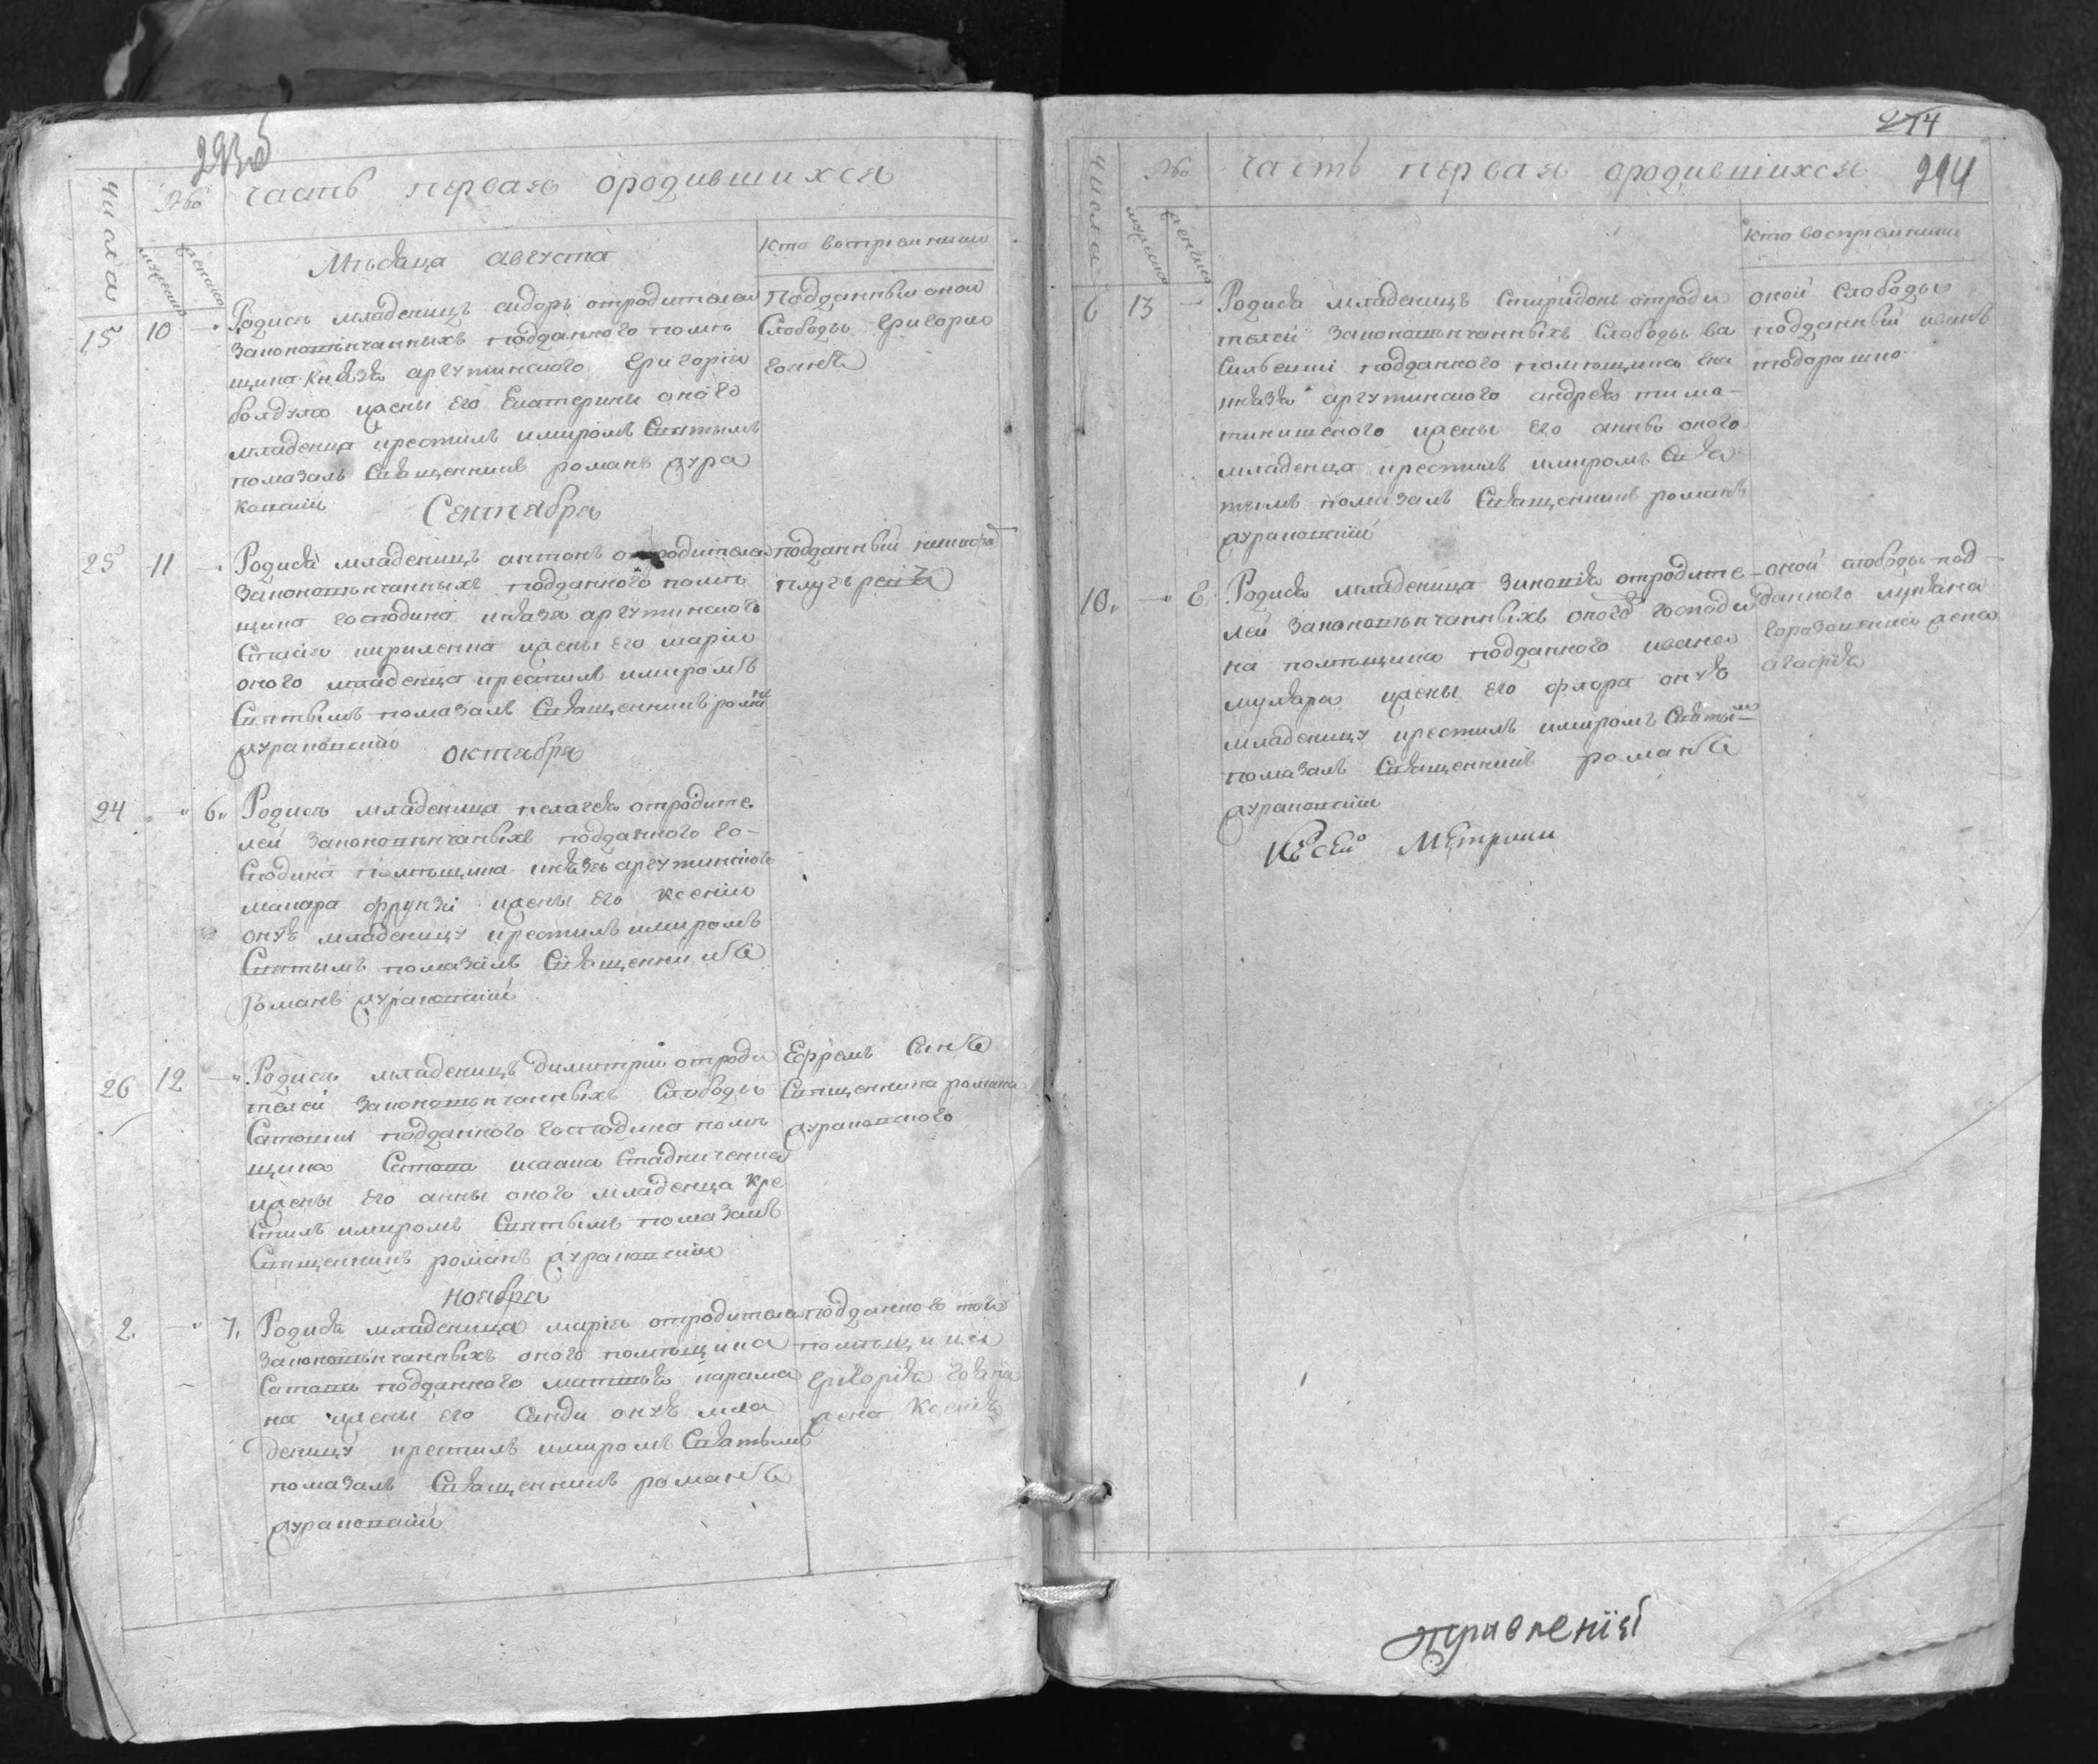 293об
Числа
№бо
часть первая ородившихся
мужеска
женска
Мѣсяца августа
Кто воспріемники
15 10
Родися младенецъ сидоръ отродителей
законовѣнчанныхъ подданного помѣ
щика князя аргутинского Григорія
болдула жены его Екатерины оного
младенца крестилъ имиромъ Святымъ
помазалъ Священникъ романъ жура
ковскій
Подданный оной
Слободы Григорій
Сентября
25 11
Родися младенецъ антонъ отродителей
законовѣнчанныхъ подданного помѣ
щика господина князя аргутинского
кириленка жены его маріи
оного младенца крестилъ имиромъ
Святымъ помазалъ Священникъ романъ
жураковскій
подданный никифоръ
октября
24 6
Родися младеница пелагея отродите
лей законовѣнчаныхъ подданного го-
сподина помѣщика князя аргутинского
макара жены его ксеніи
онуѣ младеницу крестилъ имиромъ
Святымъ помазалъ Священникъ
Романъ жураковскій
26 12
Родися младенецъ димитрій отроди
телей законовѣнчанныхъ Слободы
подданного господина помѣ
щика исаака Стадниченка
жены его анны оного младенца кре
стилъ имиромъ Святымъ помазалъ
Священникъ романъ жураковскій
Ефремъ Сынъ
Священника романа
жураковского
ноября
2. 7.
Родися младеница марія отродителей
законовѣнчанныхъ оного помѣщика
подданного матвѣя
на жены его онуѣ мла
деницу крестилъ имиромъ Святымъ
помазалъ Священникъ романъ
жураковскій
подданного той
помѣщицы
Григорія
жена Ксенія
294
Числа
№бо
часть первая ородившихся
294
мужеска
женска
Кто воспріемники
6 13
Родися младенецъ Спиридонъ отроди
телей законовѣнчанныхъ Слободы ва
сильевки подданного помѣщика
князя аргутинского андрея тимо-
жены его анны оного
младенца крестилъ имиромъ Свя
тымъ помазалъ Священникъ романъ
жураковскій
оной Слободы
подданный иванъ
тодорашко
10. 8.
Родися младеница зиновія отродите-
лей законовѣнчанныхъ оного господи
на помѣщика подданного ивана
мунтяра жены его флора онуѣ
младеницу крестилъ имиромъ Святымъ
помазалъ Священникъ романъ
жураковскій
оной слободы под-
данного лукяна
жена
агафія
Къ сей метрики
правленія